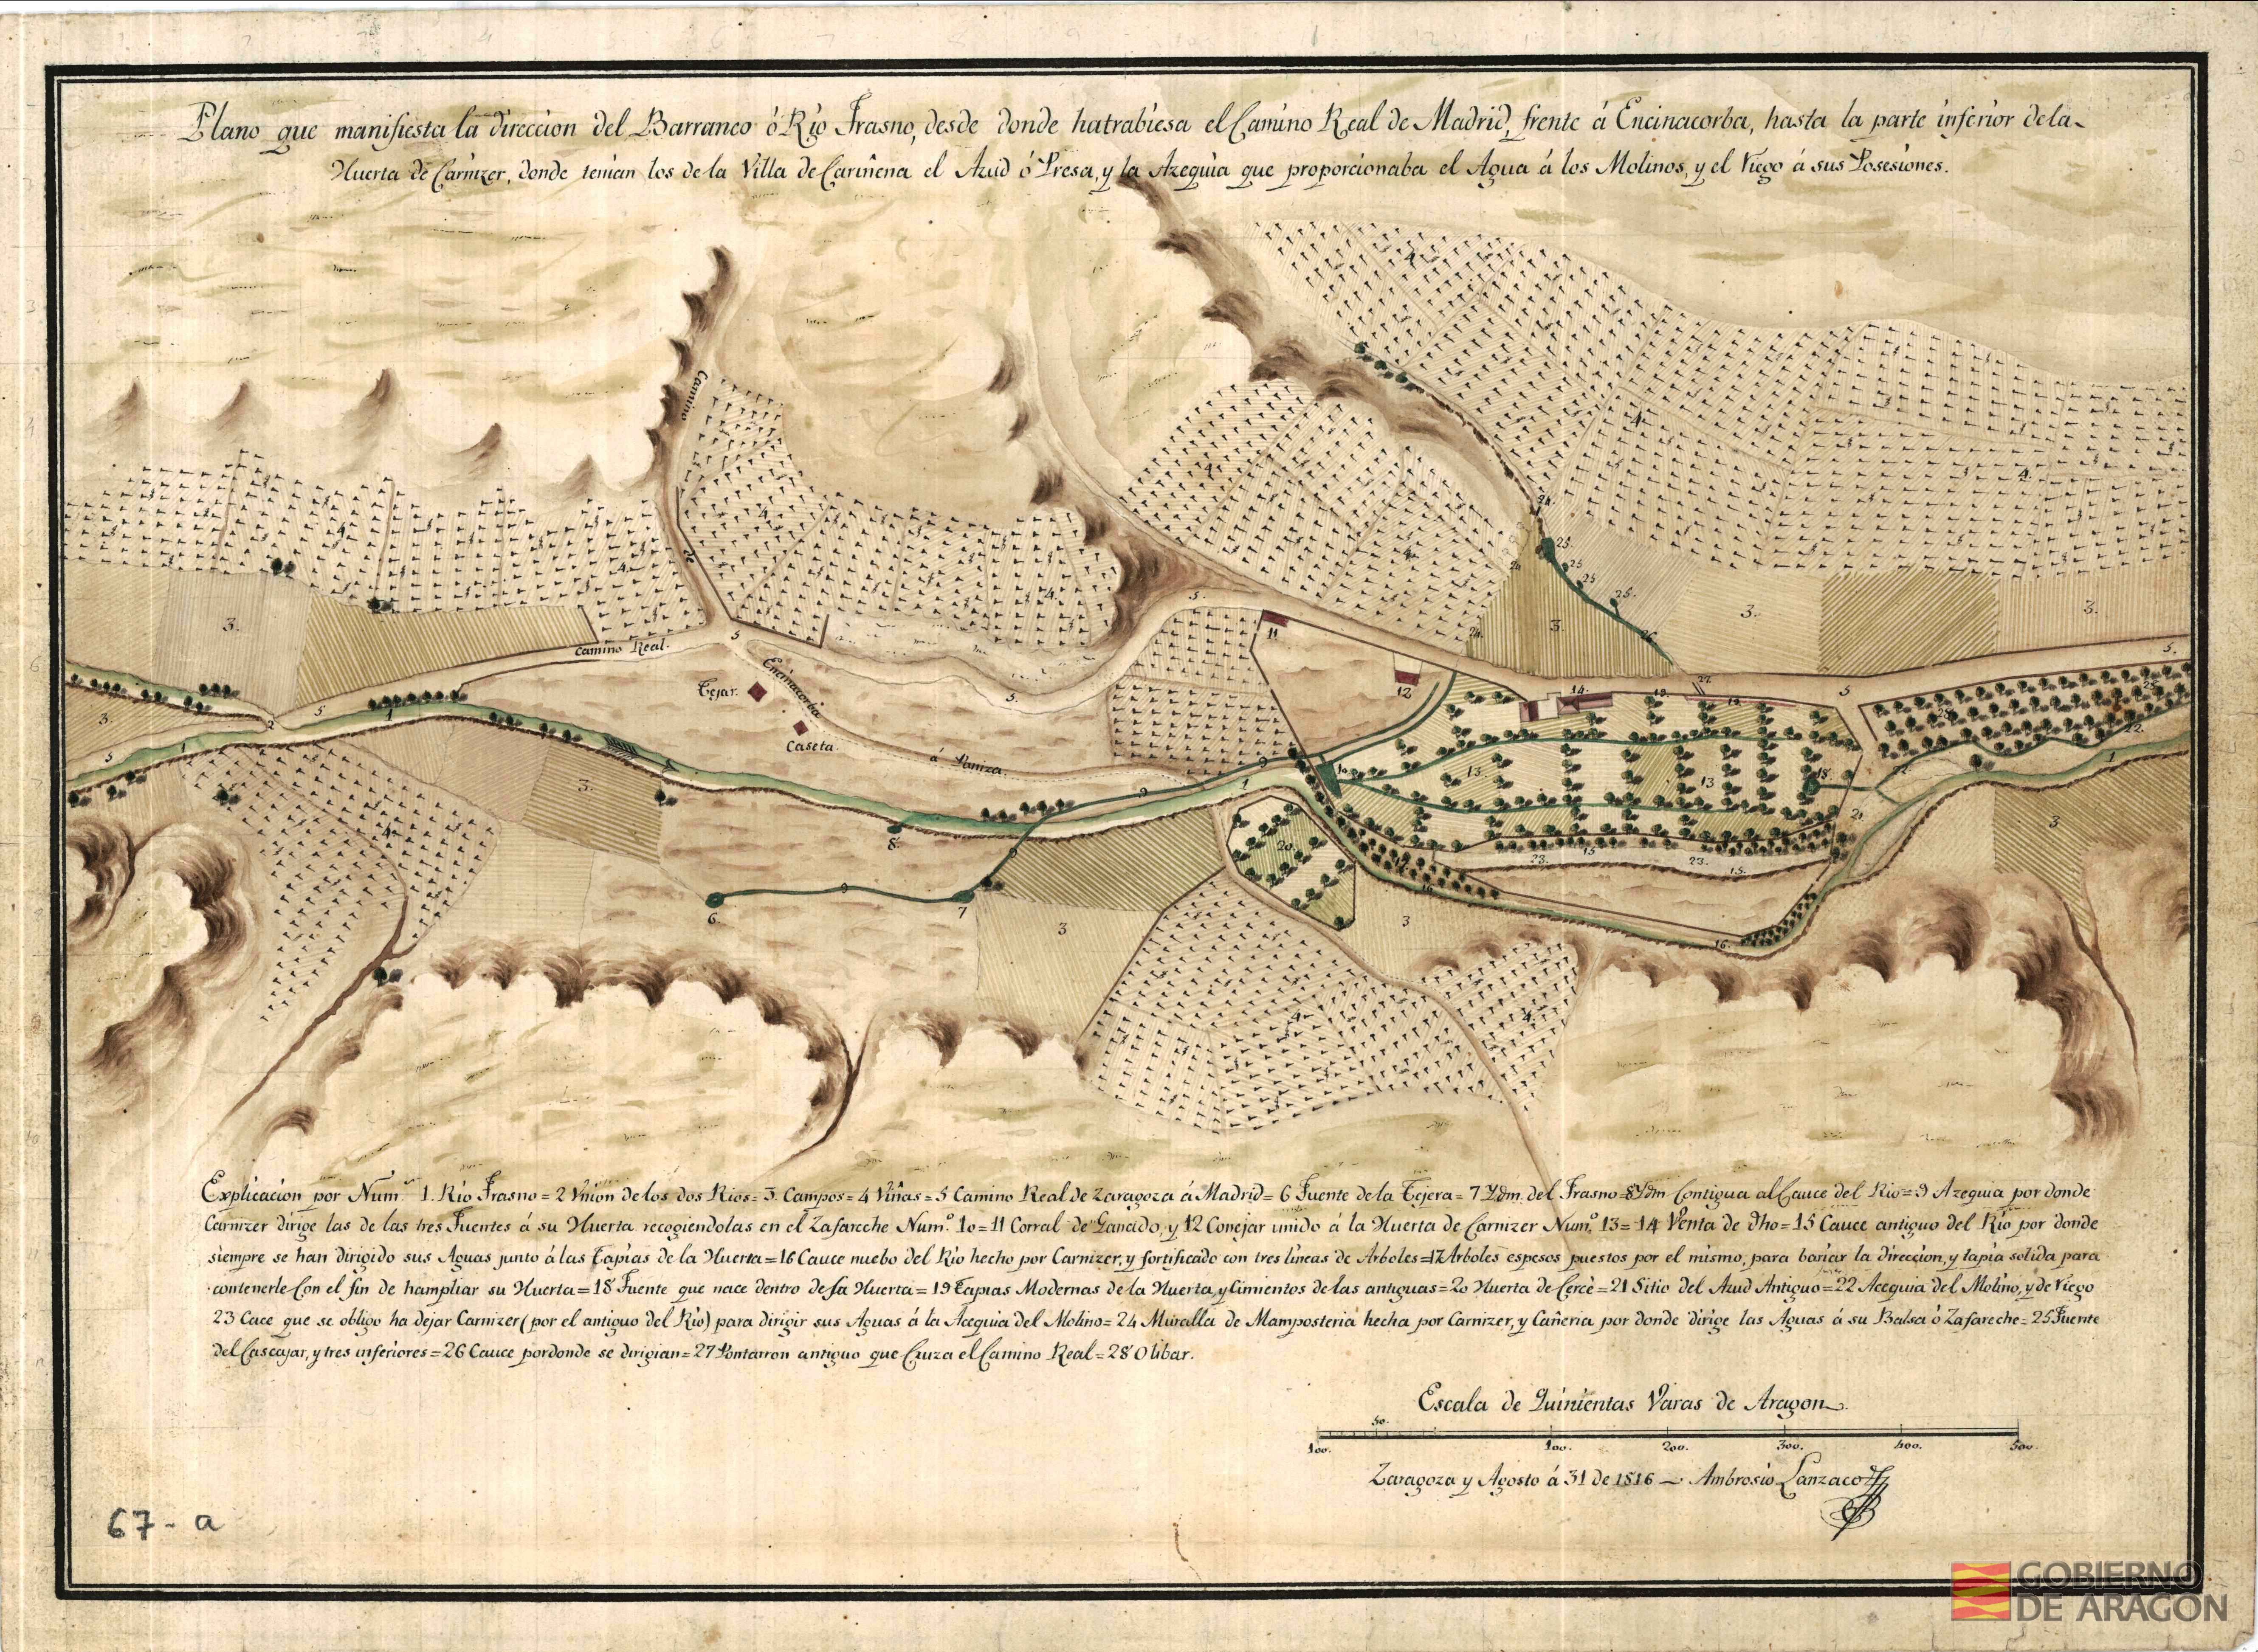 Plano que manifiesta la direccion del Barranco ó Rio Frasno, desde donde hatrabiesa el Camino Real de Madrid, frente á Encinacorba, hasta la parte inferior de la
Huerta de Carnizer, donde tenian los de la Villa de Cariñena el Azud ó Presa, y la Azequia que proporcionaba el Agua á los Molinos, y el Riego á sus Posesiones.
Camino
de
Camino Real.
Encinacorba
á Paniza.
Tejar.
Caseta.
Explicacion por Num.º 1. Rio Frasno = 2 Vnion de los dos Rios = 3. Campos = 4 Viñas = 5 Camino Real de Zaragoza á Madrid = 6 Fuente de la Tejera = 7 Ydm. del Frasno = 8 Ydm Contigua al Cauce del Rio = 9 Azequia por donde
Carnizer dirige las de las tres Fuentes á su Huerta recogiendolas en el Zafareche Num.º 10 = 11 Corral de Ganado, y 12 Conejar unido á la Huerta de Carnizer Num.º 13 = 14 Venta de dho = 15 Cauce antiguo del Rio por donde
siempre se han dirigido sus Aguas junto á las Tapias de la Huerta = 16 Cauce nuebo del Rio hecho por Carnizer, y fortificado con tres lineas de Arboles = 17 Arboles espesos puestos por el mismo, para bariar la direccion, y tapia solida para
contenerle Con el fin de hampliar su Huerta = 18 Fuente que nace dentro de la Huerta = 19 Tapias Modernas de la Huerta y Cimientos de las antiguas = 20 Huerta de Cercè = 21 Sitio del Azud Antiguo = 22 Acequia del Molino, y de Riego
23 Cace que se obligo ha dejar Carnizer (por el antiguo del Rio) para dirigir sus Aguas á la Acequia del Molino = 24 Muralla de Mamposteria hecha por Carnizer, y Cañeria por donde dirige las Aguas á su Balsa ó Zafareche = 25 Fuente
del Cascajar, y tres inferiores = 26 Cauce por donde se dirigian = 27 Pontarron antiguo que Cruza el Camino Real = 28 Olibar.
Escala de Quinientas Varas de Aragon
50.
100. 100. 200. 300. 400. 500.
Zaragoza y Agosto á 31 de 1816 — Ambrosio Lanzaco
67-a
GOBIERNO
DE ARAGON